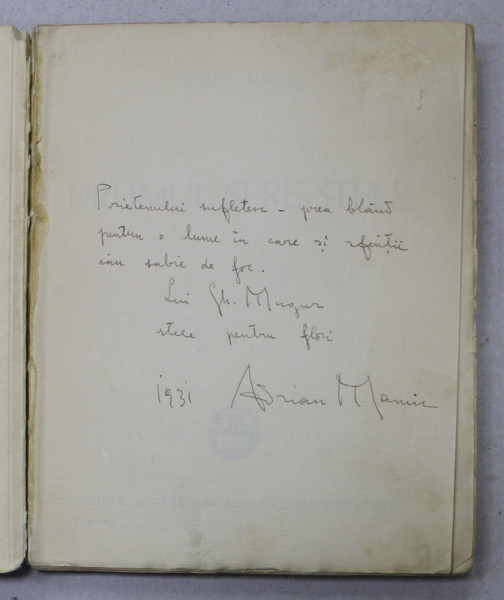 Prietenului sufletesc - prea blând
pentru o lume în care și sfinții
iau sabie de foc.
Lui Gh. Mugur
stele pentru flori
1931 Adrian Maniu